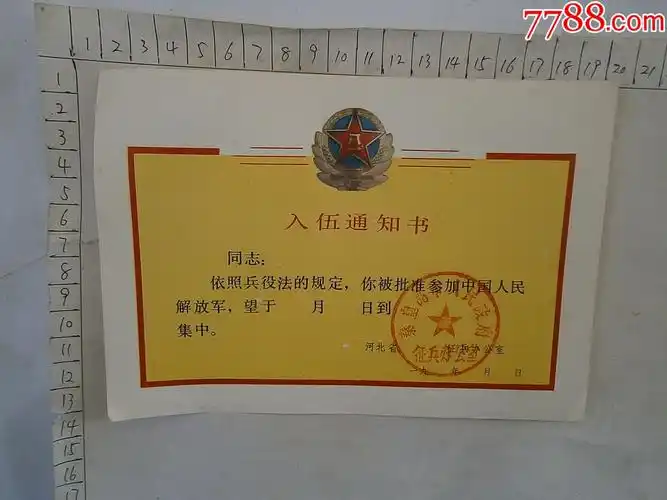 7788.com
1 2 3 4 5 6 7 8 9 10 11 12 13 14 15 16 17 18 19 20 21
1
2
3
4
5
6
7
8
9
10
11
12
13
14
15
16
17
八一
入伍通知书
同志:
依照兵役法的规定,你被批准参加中国人民
解放军,望于 月 日到
集中。
河北省 征兵办公室
秦皇岛市人民政府
征兵办公室
一九 年 月 日